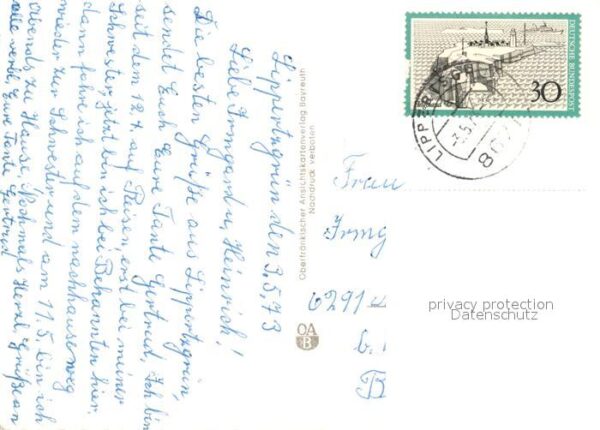 Lippertsgrün den 3.5.73
Liebe Irmgard u. Heinrich!
Die besten Grüße aus Lippertsgrün,
sendet Euch Eure Tante Gertrud. Ich bin
seit dem 12.4. auf Reisen, erst bei meiner
Schwester jetzt bin ich bei Bekannten hier.
dann fahre ich auf dem nachhauseweg
wieder zur Schwester und am 11.5. bin ich
Abends zu Hause. Nochmals Herzl. Grüße an
alle von Eure Tante Gertrud
Oberfränkischer Ansichtskartenverlag Bayreuth
Nachdruck verboten
OA
B
DEUTSCHE BUNDESPOST
30
LIPPERTSGRÜN
-3.5.73
Frau
Irmg
6291
b.
B
privacy protection
Datenschutz